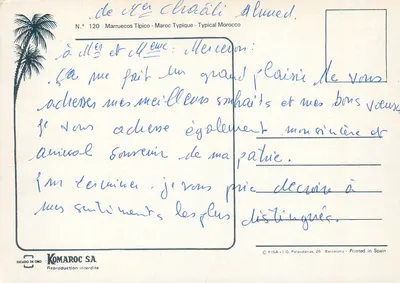 de Mer Chaâli Ahmed.
N.° 120 Marruecos Típico - Maroc Typique - Typical Morocco
à Mers et Meme: Merceron:
Ça me fait un grand plaisir de vous
adresser mes meilleurs souhaits et mes bons vœux
Je vous adresse également mon sincère et
animal souvenir de ma patrie.
Pour terminer. je vous prie de croire à
mes sentiments les plus distingués.
KOMAROC S.A.
Reproduction interdite
© F.I.S.A. - I.G. Palaudarias, 26 - Barcelona - Printed in Spain